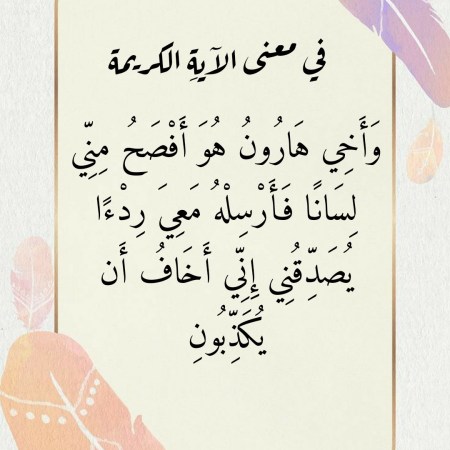 في معنى الآيةِ الكريمة
وَأَخِي هَارُونُ هُوَ أَفْصَحُ مِنِّي
لِسَانًا فَأَرْسِلْهُ مَعِيَ رِدْءًا
يُصَدِّقُنِي إِنِّي أَخَافُ أَن
يُكَذِّبُونِ